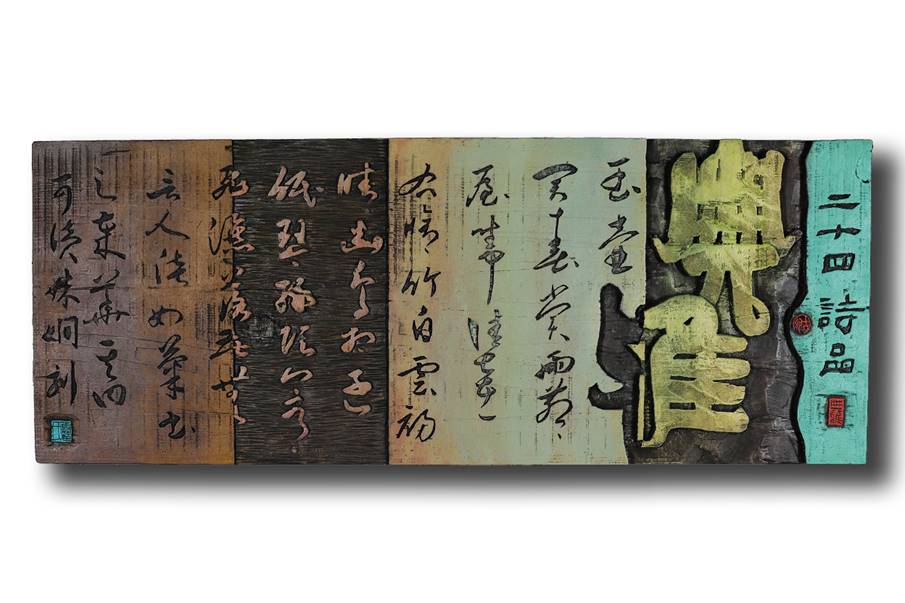 二十四詩品
典雅
玉壺
買春賞雨茆
屋坐中佳士左
右脩竹白雲初
晴幽鳥相逐
眠琴綠陰上有
飛瀑落花無
言人淡如菊書
之歲華其曰
可讀姝嫻刻